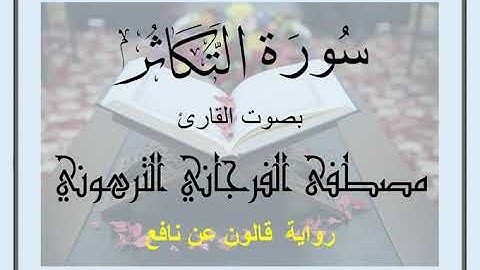 سُورَة التَّكَاثُر
بصوت القارئ
مصطفى الفرجاني الترهوني
رواية قالون عن نافع